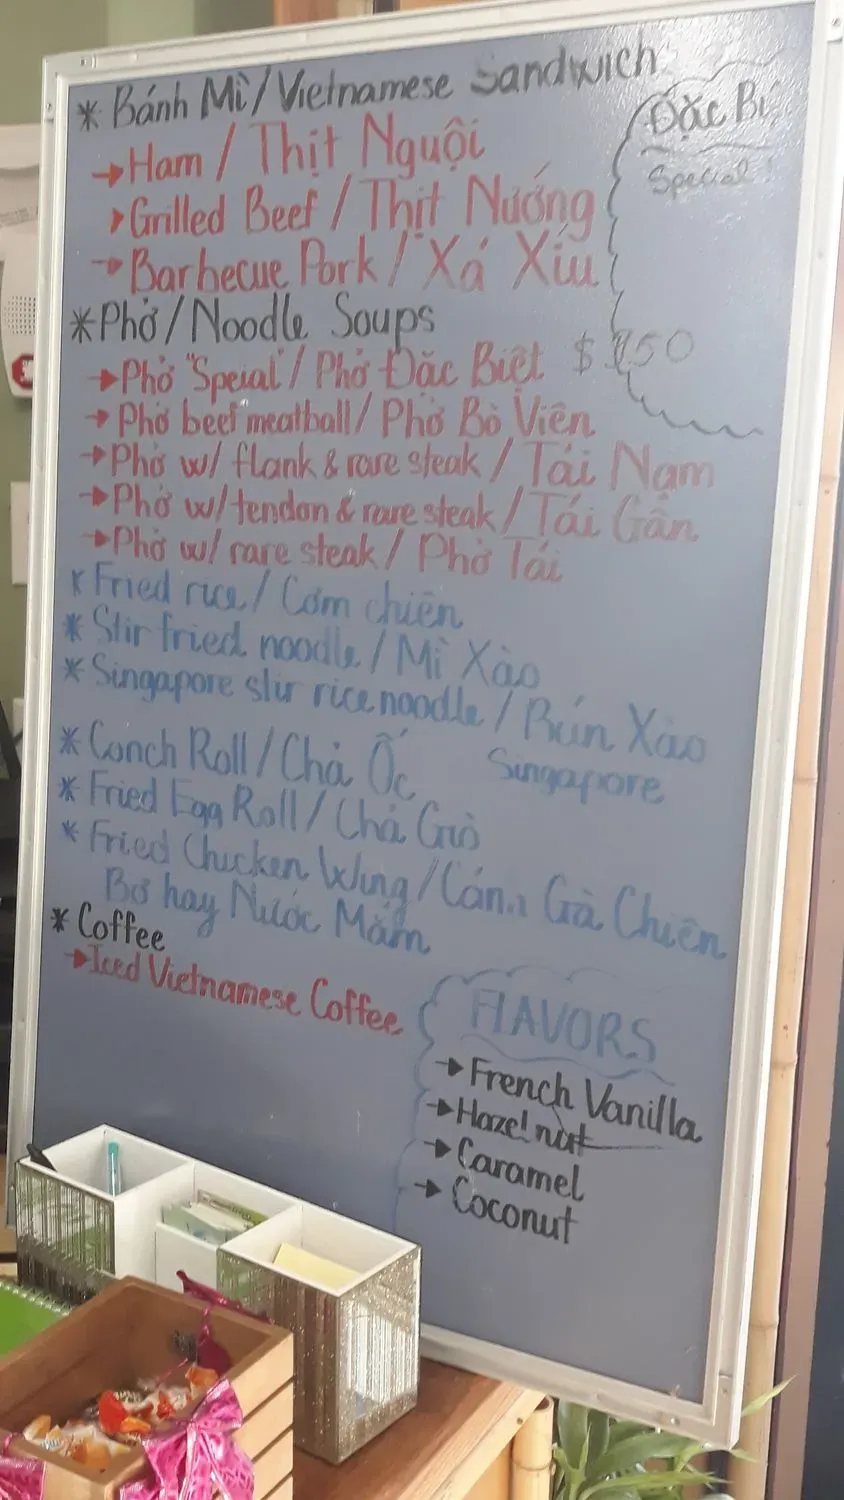 * Bánh Mì / Vietnamese Sandwich
→ Ham / Thịt Nguội
→ Grilled Beef / Thịt Nướng
→ Barbecue Pork / Xá Xíu
* Phở / Noodle Soups
→ Phở "Speial" / Phở Đặc Biệt
→ Phở beef meatball / Phở Bò Viên
→ Phở w/ flank & rare steak / Tái Nạm
→ Phở w/ tendon & rare steak / Tái Gân
→ Phở w/ rare steak / Phở Tái
* Fried rice / Cơm chiên
* Stir fried noodle / Mì Xào
* Singapore stir rice noodle / Bún Xào
Singapore
* Conch Roll / Chả Ốc
* Fried Egg Roll / Chả Giò
* Fried Chicken Wing / Cánh Gà Chiên
Bơ hay Nước Mắm
* Coffee
→ Iced Vietnamese Coffee
Đặc Bi
Special!
FLAVORS
→ French Vanilla
→ Hazelnut
→ Caramel
→ Coconut